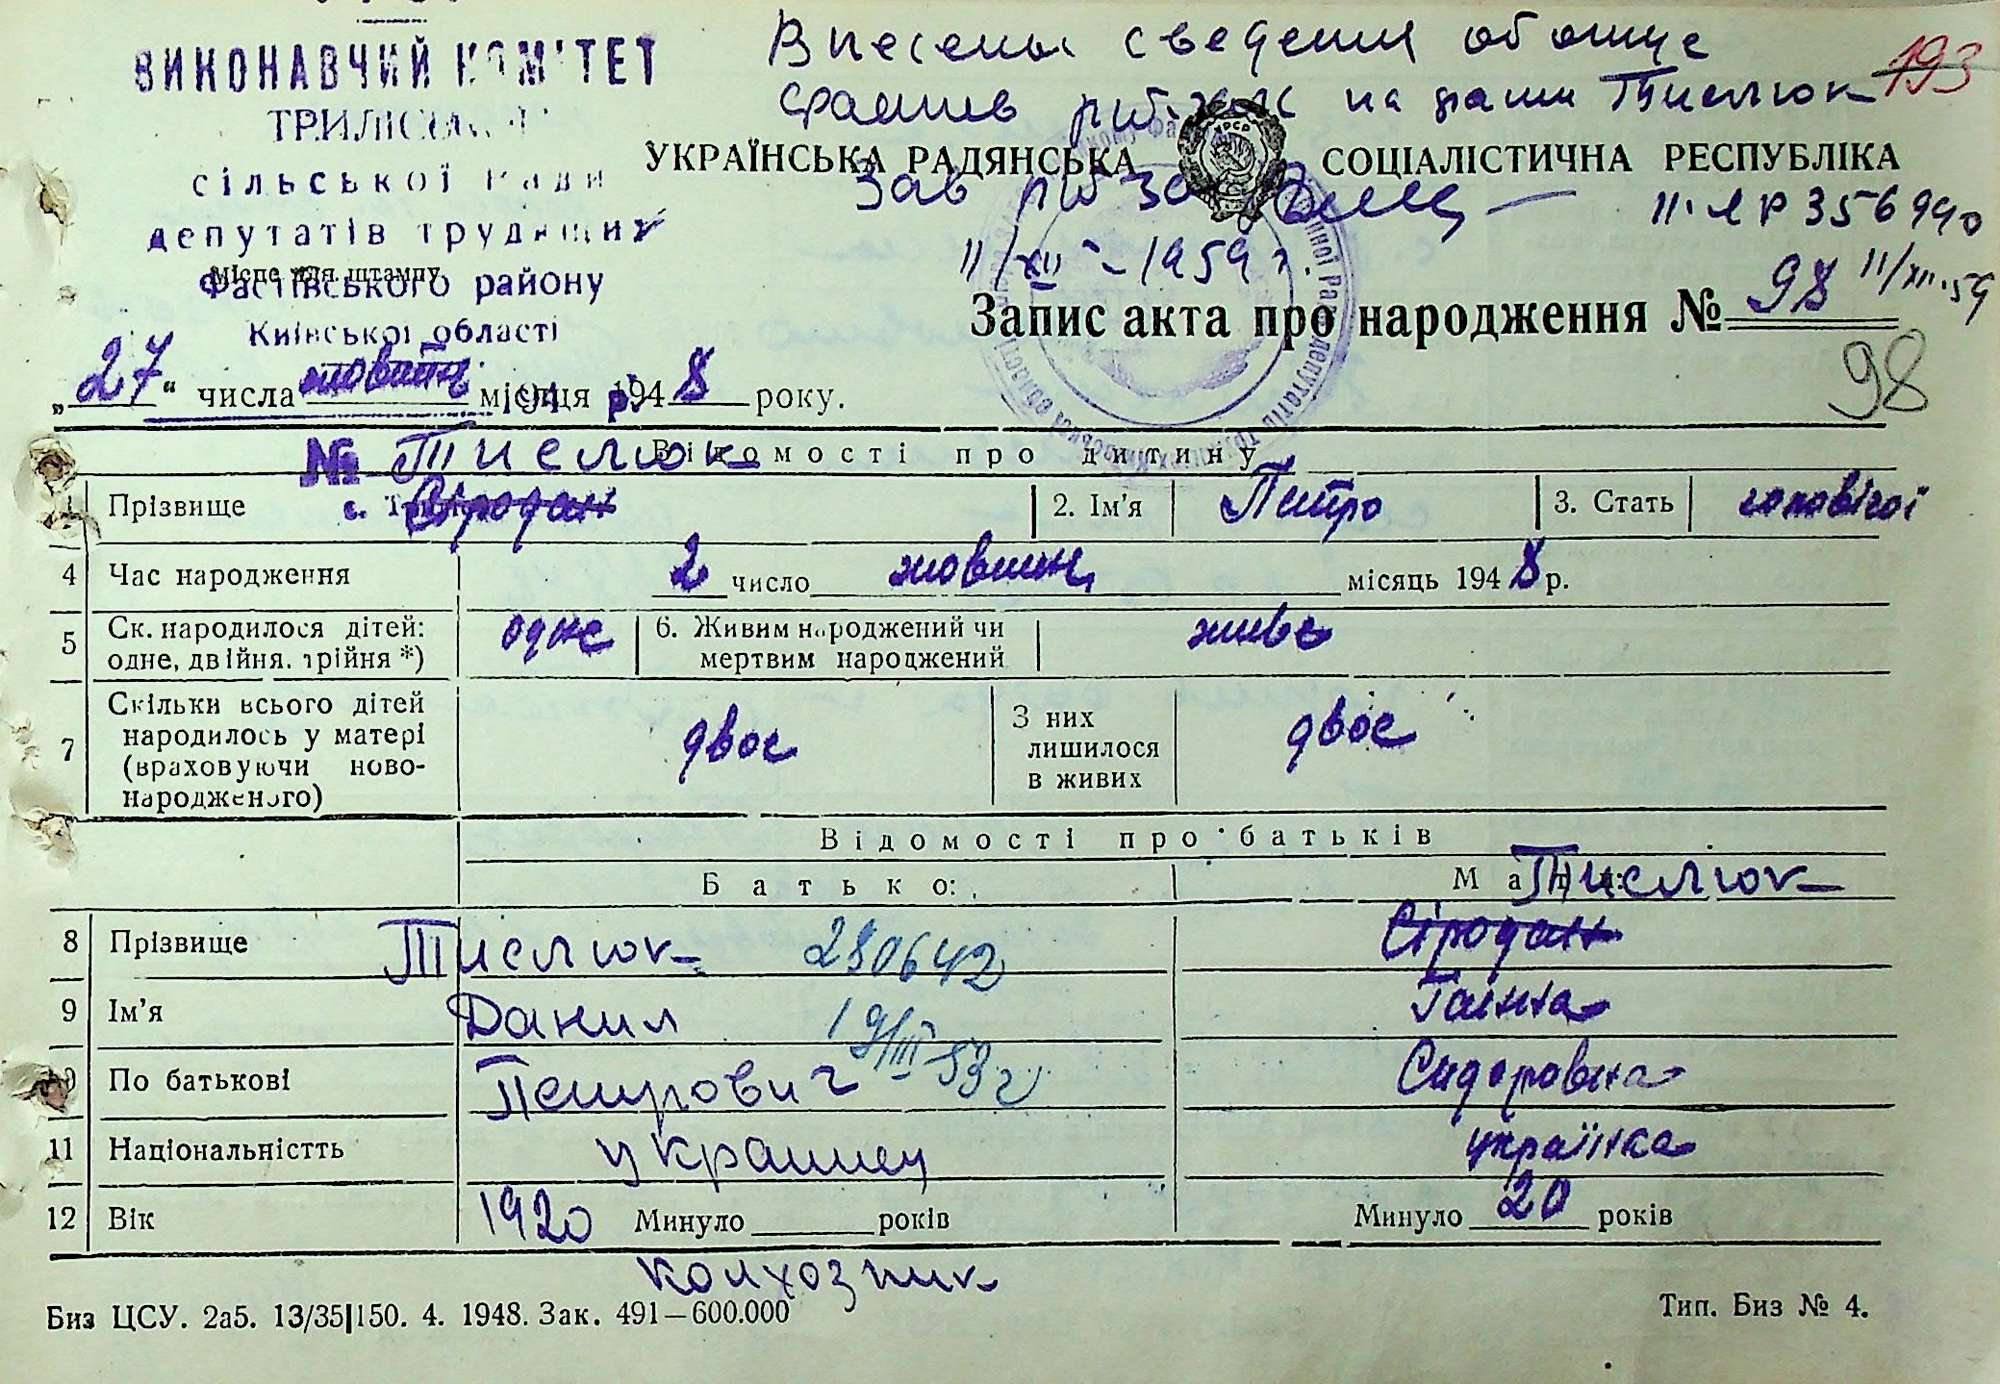 ВИКОНАВЧИЙ КОМІТЕТ
ТРИЛІСЬКОЇ
сільської Ради
депутатів трудящих
місце для штампу
Фастівського району
Київської області
Внесены сведения об отце
193
на
Тислюк
УКРАЇНСЬКА РАДЯНСЬКА СОЦІАЛІСТИЧНА РЕСПУБЛІКА
Зав
II-ЯР 356940
11/XII-1959 г.
11/XII-59
Запис акта про народження № 98
98
„27“ числа жовтня місяця 1948 року.
№
Тислюк
Відомості про дитину
1 Прізвище Сіродан 2. Ім'я Петро 3. Стать чоловічої
4 Час народження 2 число жовтня місяць 1948 р.
5 Ск. народилося дітей: одне, двійня, трійня *) одне 6. Живим народжений чи мертвим народжений живе
7 Скільки всього дітей народилось у матері (враховуючи новонародженого) двоє З них лишилося в живих двоє
Відомості про батьків
Батько: Мати:
Тислюк
8 Прізвище Тислюк 280642 Сіродан
9 Ім'я Данил 19/III-53 г Ганна
10 По батькові Петрович Сидоровна
11 Національністть украинец українка
12 Вік 1920 Минуло років Минуло 20 років
колхозник
Биз ЦСУ. 2а5. 13/35|150. 4. 1948. Зак. 491—600.000 Тип. Биз № 4.